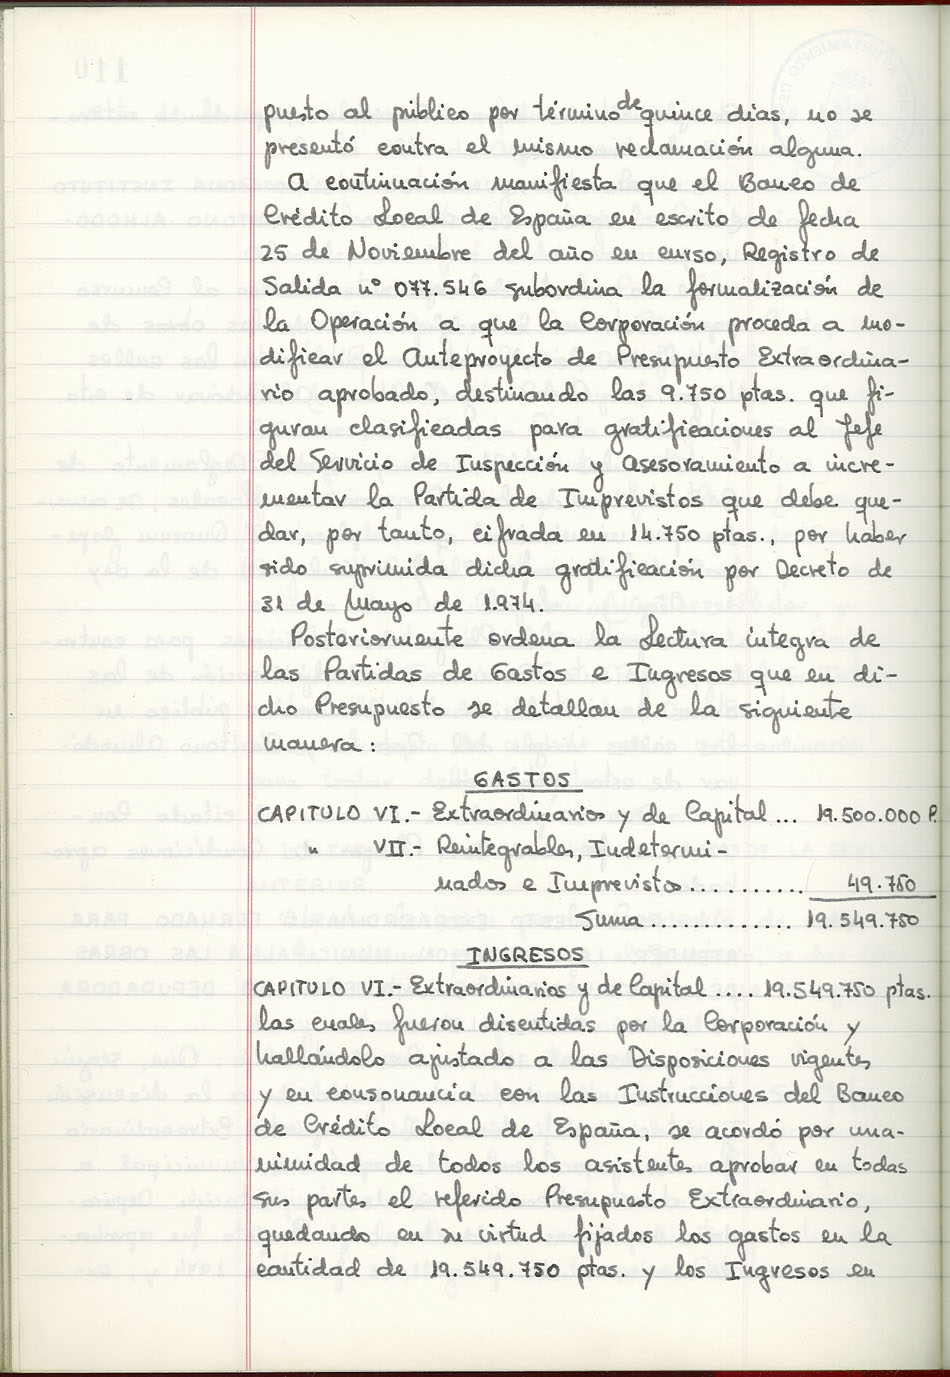 puesto al público por término de quince dias, no se
presentó contra el mismo reclamación alguna.
A continuación manifiesta que el Banco de
Crédito Local de España en escrito de fecha
25 de Noviembre del año en curso, Registro de
Salida nº 077.546 subordina la formalización de
la Operación a que la Corporación proceda a mo-
dificar el Anteproyecto de Presupuesto Extraordina-
rio aprobado, destinando las 9.750 ptas. que fi-
guran clasificadas para gratificaciones al Jefe
del Servicio de Inspección y Asesoramiento a incre-
mentar la Partida de Imprevistos que debe que-
dar, por tanto, cifrada en 14.750 ptas., por haber
sido suprimida dicha gratificación por Decreto de
31 de Mayo de 1.974.
Posteriormente ordena la lectura integra de
las Partidas de Gastos e Ingresos que en di-
cho Presupuesto se detallan de la siguiente
manera:
GASTOS
CAPITULO VI.- Extraordinarios y de Capital... 19.500.000 P.
" VII.- Reintegrables, Indetermi-
nados e Imprevistos.......... 49.750
Suma............. 19.549.750
INGRESOS
CAPITULO VI.- Extraordinarios y de Capital.... 19.549.750 ptas.
las cuales fueron discutidas por la Corporación y
hallándolo ajustado a las Disposiciones vigentes
y en consonancia con las Instrucciones del Banco
de Crédito Local de España, se acordó por una-
nimidad de todos los asistentes aprobar en todas
sus partes el referido Presupuesto Extraordinario,
quedando en su virtud fijados los gastos en la
cantidad de 19.549.750 ptas. y los Ingresos en